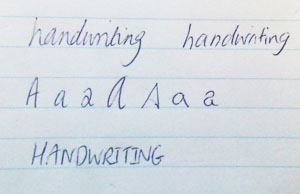 handwriting handwriting
A a a A A a a
HANDWRITING